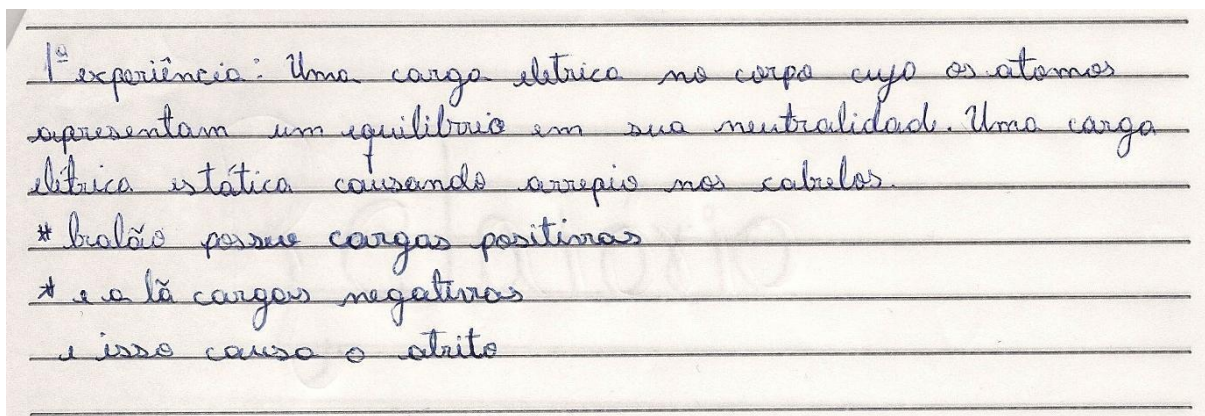 1ª experiência: Uma carga eletrica no corpo cujo os atomos
apresentam um equilibrio em sua neutralidade. Uma carga
elétrica estática causando arrepio nos cabelos.
* balão possue cargas positivas
* e a lã cargas negativas
e isso causa o atrito